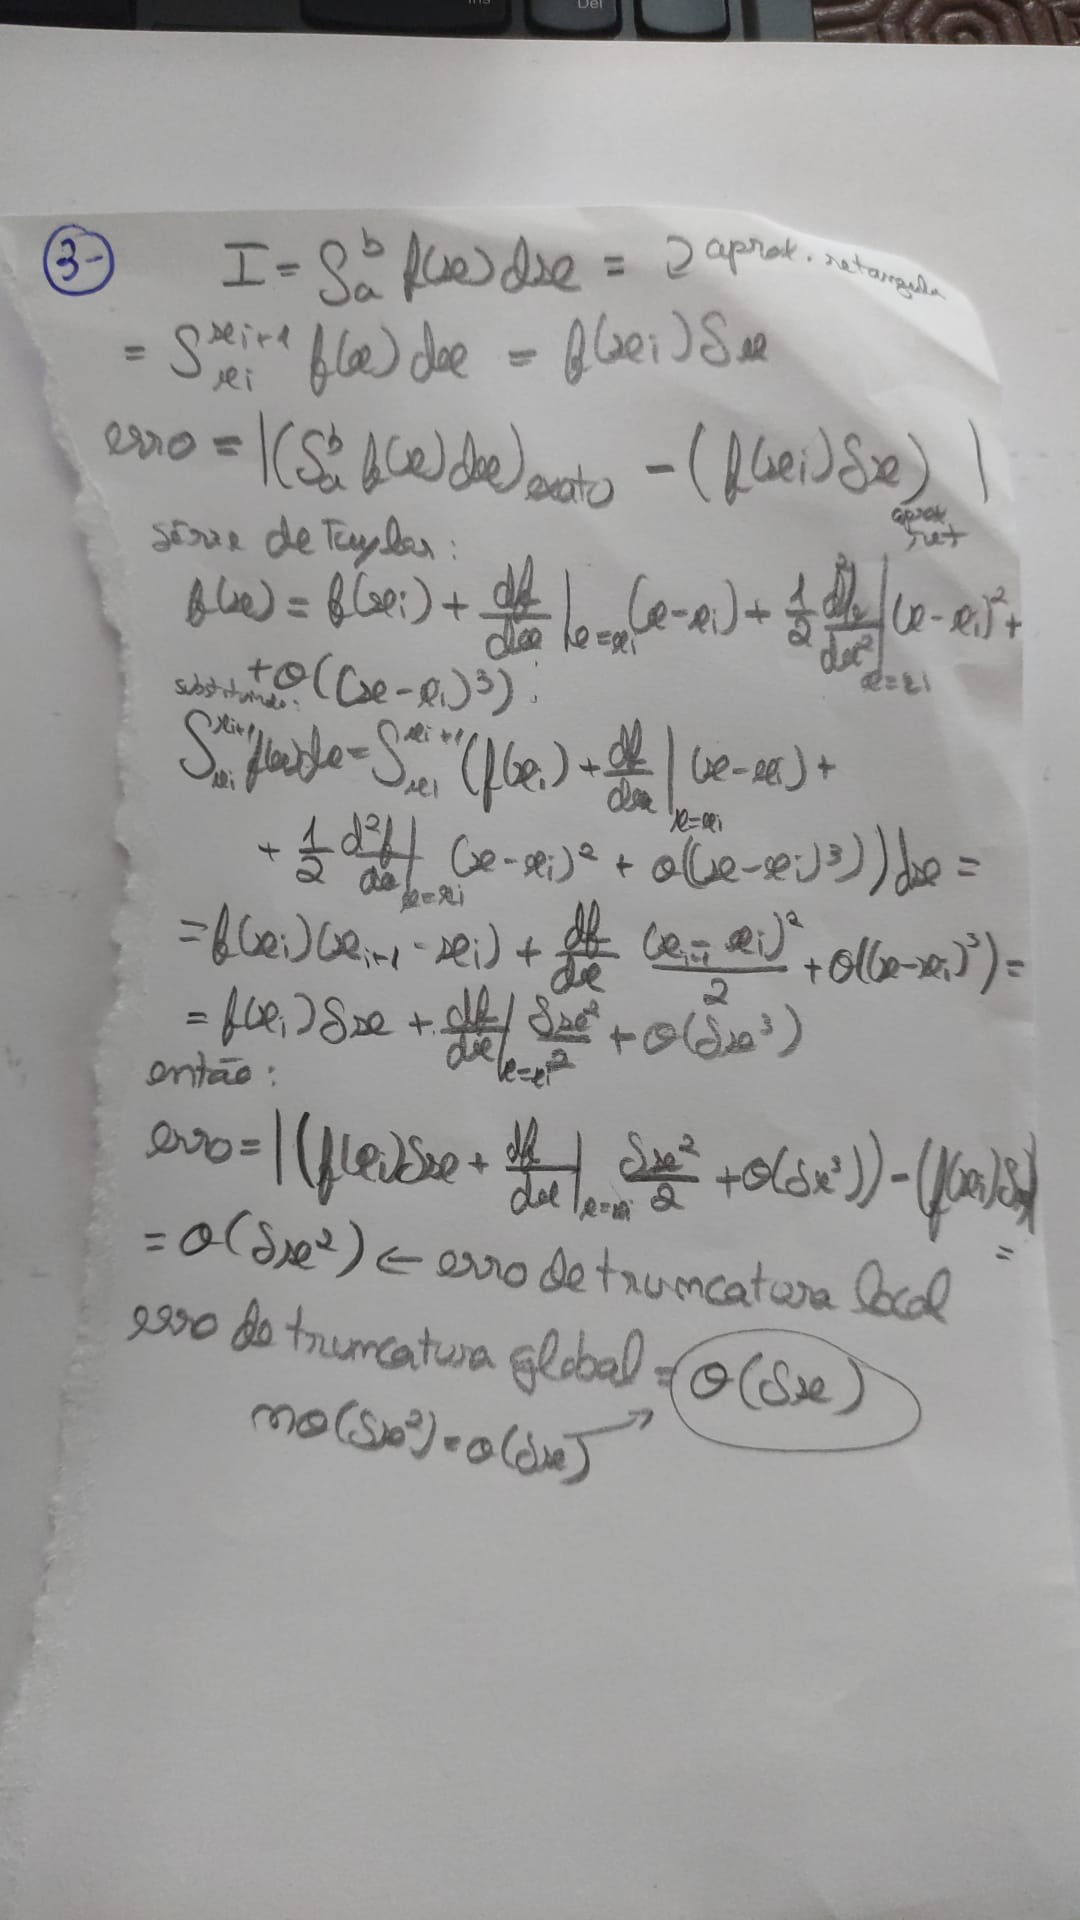 Ins
Del
3- I = ∫_a^b f(x) dx = aprox. retangular
= ∫_{xi}^{xi+1} f(x) dx = f(xi) δx
erro = |(∫_a^b f(x) dx)_exato - (f(xi) δx)_aprox ret|
série de Taylor:
f(x) = f(xi) + df/dx|_{x=xi} (x-xi) + 1/2 d²f/dx²|_{x=xi} (x-xi)² +
+ O((x-xi)³).
substituindo:
∫_{xi}^{xi+1} f(x) dx = ∫_{xi}^{xi+1} (f(xi) + df/dx|_{x=xi} (x-xi) +
+ 1/2 d²f/dx|_{x=xi} (x-xi)² + O((x-xi)³)) dx =
= f(xi) (xi+1 - xi) + df/dx (xi+1 - xi)²/2 + O((x-xi)³) =
= f(xi) δx + df/dx|_{x=xi} δx²/2 + O(δx³)
então:
erro = |(f(xi) δx + df/dx|_{x=xi} δx²/2 + O(δx³)) - (f(xi) δx)| =
= O(δx²) ← erro de truncatura local
erro de truncatura global = O(δx)
n O(δx²) = O(δx) →